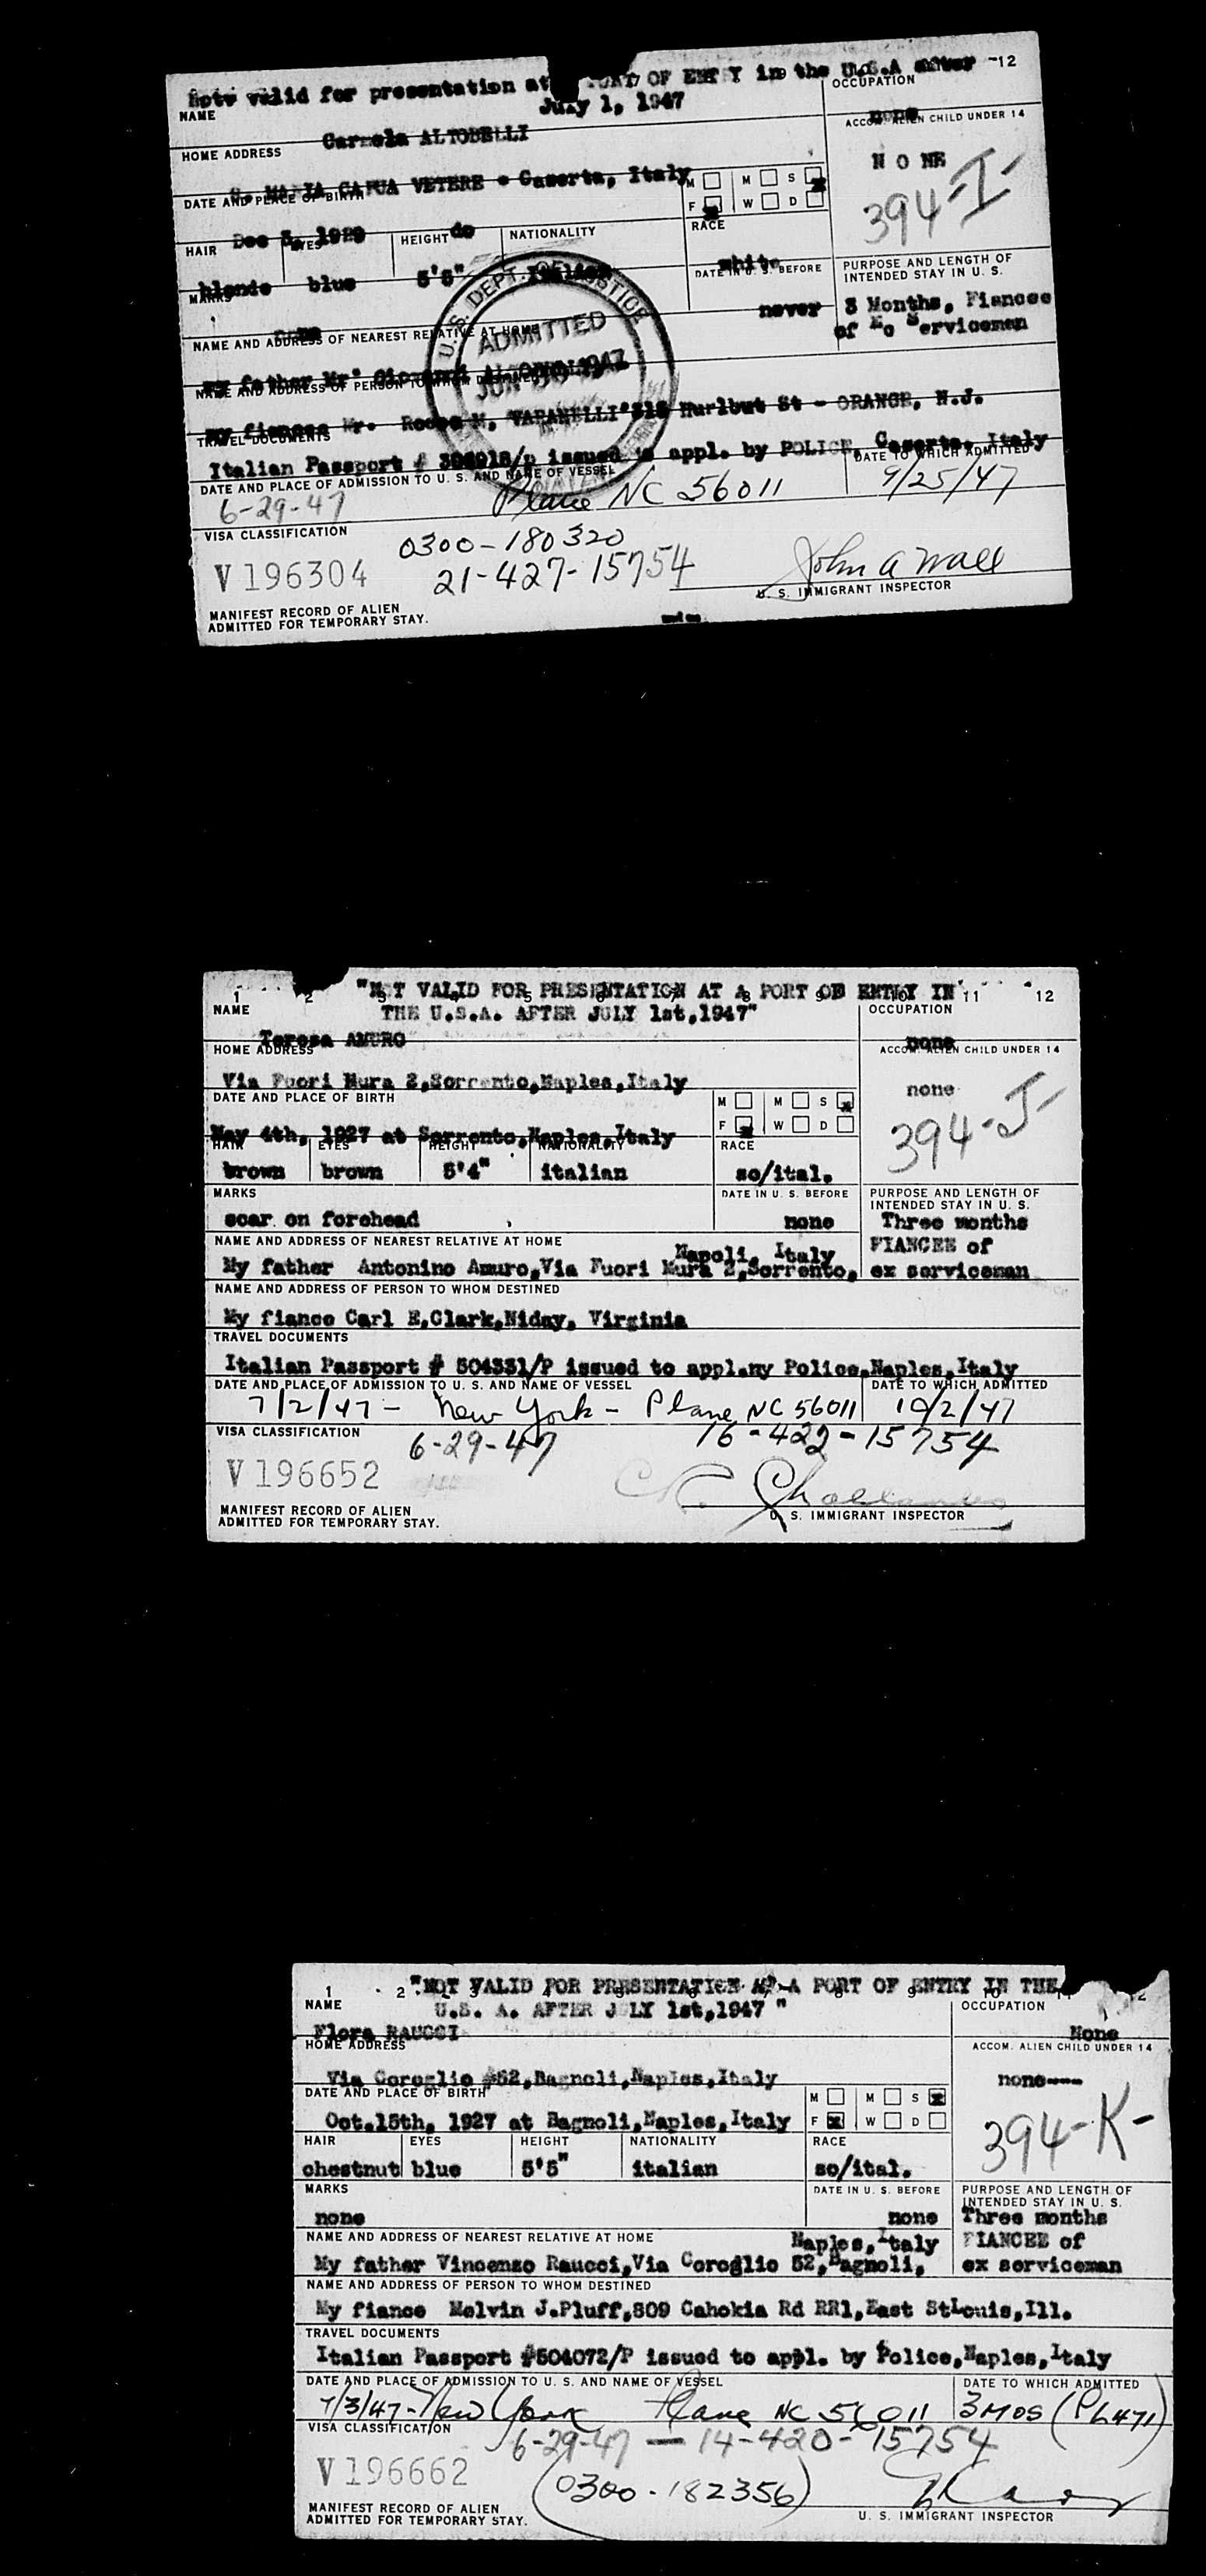 Note valid for presentation at PORT OF ENTRY in the U.S.A after -12
July 1, 1947
NAME
OCCUPATION
none
Carmela ALTOBELLI
ACCOM. ALIEN CHILD UNDER 14
HOME ADDRESS
N O NE
S. MARIA CAPUA VETERE - Caserta, Italy
394-I-
DATE AND PLACE OF BIRTH
M M S
F W D
Dec 1929 do
HAIR EYES HEIGHT NATIONALITY RACE
blonde blue 5'5" Italian white
MARKS
DATE IN U. S. BEFORE
PURPOSE AND LENGTH OF
INTENDED STAY IN U. S.
never
3 Months, Fiancee
of Ex Serviceman
none
NAME AND ADDRESS OF NEAREST RELATIVE AT HOME
U.S. DEPT. OF JUSTICE
ADMITTED
JUN 1947
my father Mr. Giovanni
NAME AND ADDRESS OF PERSON TO WHOM DESTINED
my fiancee Mr. Rocco M. Hurlbut St - ORANGE, N.J.
TRAVEL DOCUMENTS
Italian Passport # issued to appl. by POLICE, Caserta, Italy
DATE AND PLACE OF ADMISSION TO U. S. AND NAME OF VESSEL
DATE TO WHICH ADMITTED
6-29-47 Plane NC 56011 9/25/47
VISA CLASSIFICATION
0300-180320
V 196304 21-427-15754
John A Wall
U. S. IMMIGRANT INSPECTOR
MANIFEST RECORD OF ALIEN
ADMITTED FOR TEMPORARY STAY.
"NOT VALID FOR PRESENTATION AT A PORT OF ENTRY IN
1 2 3 4 5 6 7 8 9 10 11 12
THE U.S.A. AFTER JULY 1st,1947"
NAME
OCCUPATION
Teresa AMURO
none
HOME ADDRESS
ACCOM. ALIEN CHILD UNDER 14
Via Fuori Mura 2,Sorrento,Naples,Italy
none
DATE AND PLACE OF BIRTH
M M S
F W D
394-J-
May 4th, 1927 at Sorrento,Naples,Italy
HAIR EYES HEIGHT NATIONALITY RACE
brown brown 5'4" italian so/ital.
MARKS
DATE IN U. S. BEFORE
PURPOSE AND LENGTH OF
INTENDED STAY IN U. S.
scar on forehead
none
Three months
NAME AND ADDRESS OF NEAREST RELATIVE AT HOME
FIANCEE of
Napoli, Italy
My father Antonino Amuro,Via Fuori Mura 2,Sorrento,
ex serviceman
NAME AND ADDRESS OF PERSON TO WHOM DESTINED
My fiance Carl E,Clark,Niday, Virginia
TRAVEL DOCUMENTS
Italian Passport # 504331/P issued to appl.my Police,Naples,Italy
DATE AND PLACE OF ADMISSION TO U. S. AND NAME OF VESSEL
DATE TO WHICH ADMITTED
7/2/47 - New York - Plane NC 56011 10/2/47
VISA CLASSIFICATION
6-29-47 16-422-15754
V 196652
U. S. IMMIGRANT INSPECTOR
MANIFEST RECORD OF ALIEN
ADMITTED FOR TEMPORARY STAY.
"NOT VALID FOR PRESENTATION AT A PORT OF ENTRY IN THE
1 2 3 4 5 6 7 8 9 10 11 12
U.S. A. AFTER JULY 1st,1947 "
NAME
OCCUPATION
Flora RAUCCI
None
HOME ADDRESS
ACCOM. ALIEN CHILD UNDER 14
Via Coroglio #52,Bagnoli,Naples,Italy
none---
DATE AND PLACE OF BIRTH
M M S
F W D
394-K-
Oct.15th, 1927 at Bagnoli,Naples,Italy
HAIR EYES HEIGHT NATIONALITY RACE
chestnut blue 5'5" italian so/ital.
MARKS
DATE IN U. S. BEFORE
PURPOSE AND LENGTH OF
INTENDED STAY IN U. S.
none
none
Three months
NAME AND ADDRESS OF NEAREST RELATIVE AT HOME
Naples,Italy
FIANCEE of
My father Vincenzo Raucci,Via Coroglio 52,Bagnoli,
ex serviceman
NAME AND ADDRESS OF PERSON TO WHOM DESTINED
My fiance Melvin J.Pluff,809 Cahokia Rd RR1,East StLouis,Ill.
TRAVEL DOCUMENTS
Italian Passport #504072/P issued to appl. by Police,Naples,Italy
DATE AND PLACE OF ADMISSION TO U. S. AND NAME OF VESSEL
DATE TO WHICH ADMITTED
7/3/47-New York Plane NC 56011 3 MOS (PL471)
VISA CLASSIFICATION
6-29-47 - 14-420-15754
V 196662
(0300-182356)
U. S. IMMIGRANT INSPECTOR
MANIFEST RECORD OF ALIEN
ADMITTED FOR TEMPORARY STAY.